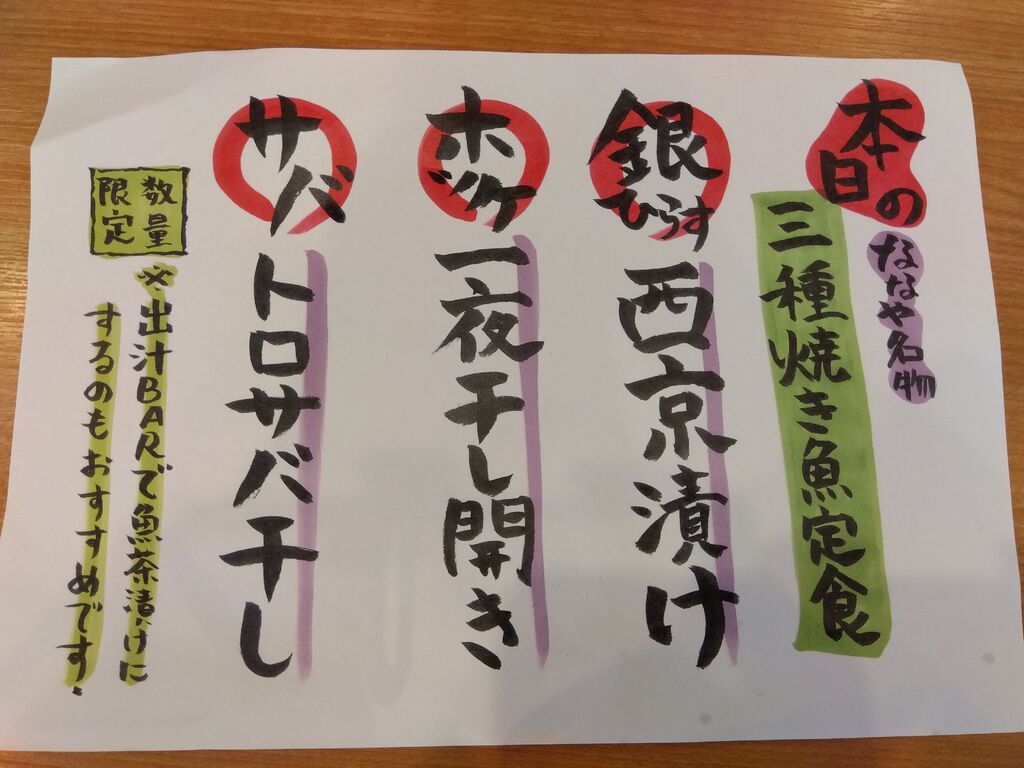 本日の
ななや名物
三種焼き魚定食
銀ひらす
西京漬け
ホッケ
一夜干し開き
サバ
トロサバ干し
数量
限定
※出汁BARで魚茶漬けに
するのもおすすめです.